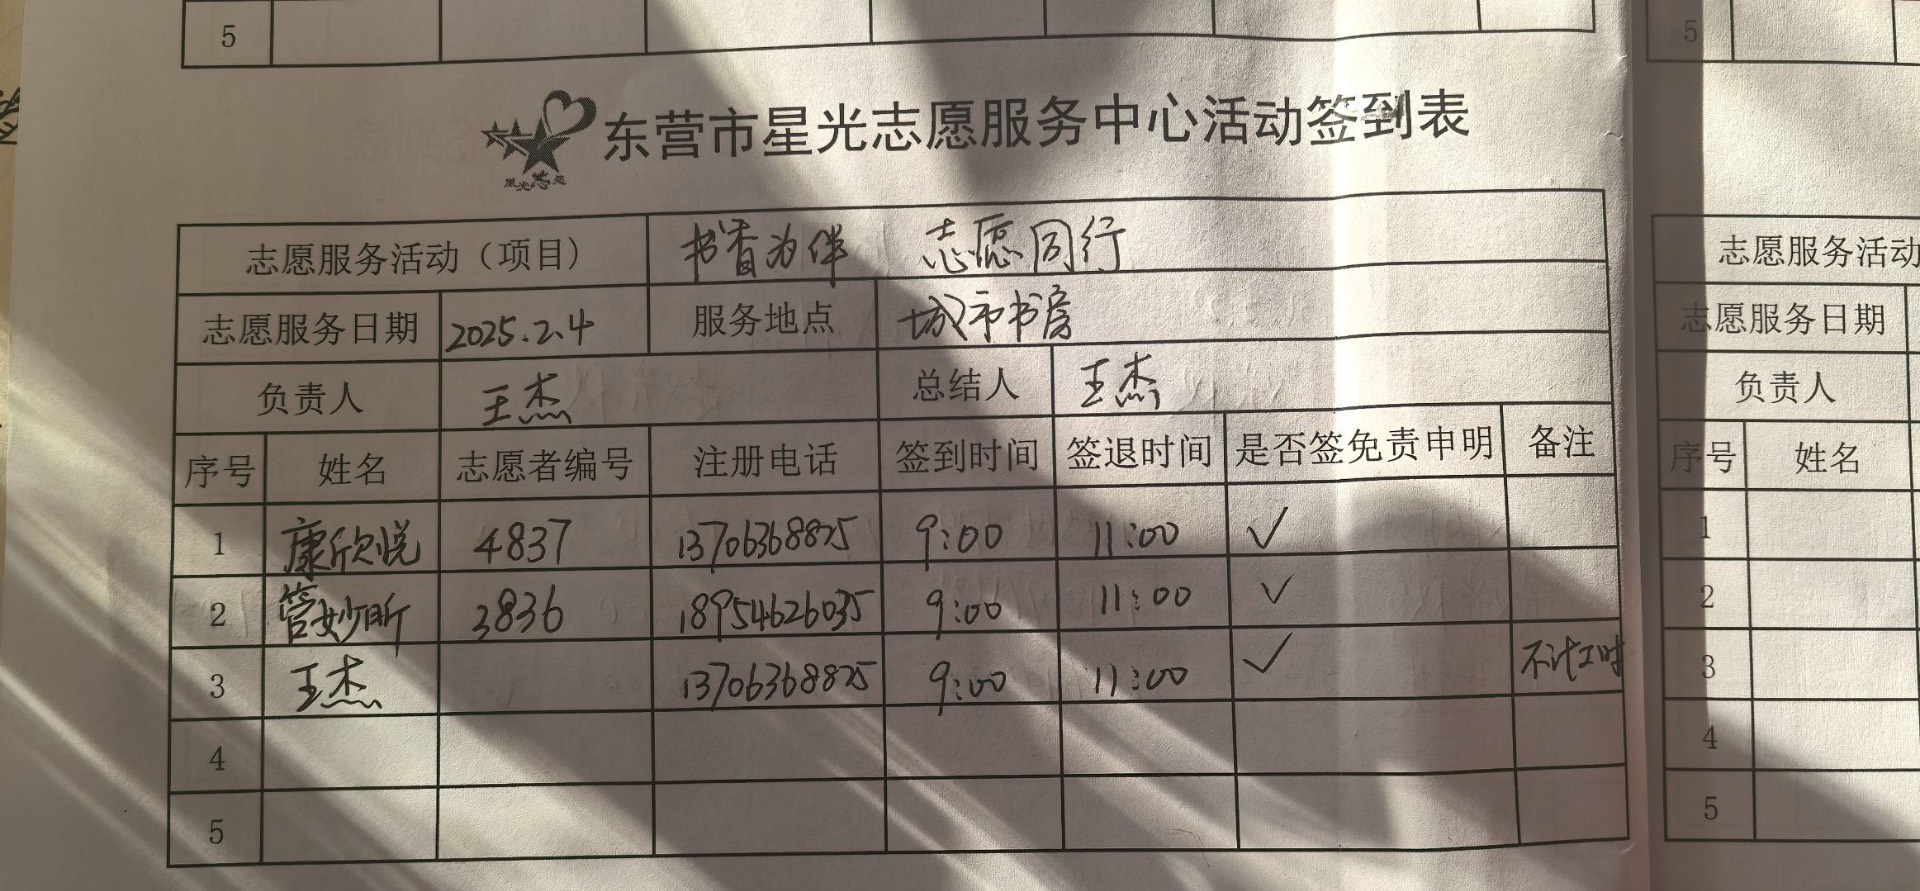 5
5
东营市星光志愿服务中心活动签到表
星光志愿
志愿服务活动（项目） 书香为伴 志愿同行
志愿服务日期 2025.2.4 服务地点 城市书房
负责人 王杰 总结人 王杰
序号 姓名 志愿者编号 注册电话 签到时间 签退时间 是否签免责申明 备注
1 康欣悦 4837 13706368825 9:00 11:00 ✓
2 管妙昕 3836 18954626035 9:00 11:00 ✓
3 王杰 13706368825 9:00 11:00 ✓ 不计工时
4
5
志愿服务活动
志愿服务日期
负责人
序号 姓名
1
2
3
4
5